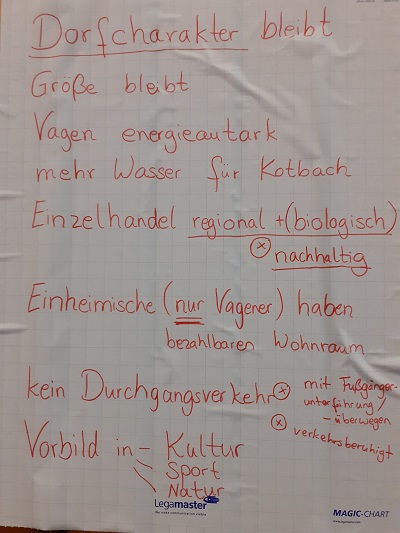 Dorfcharakter bleibt
Größe bleibt
Vagen energieautark
mehr Wasser für Kotbach
Einzelhandel regional +(biologisch)
ⓧ nachhaltig
Einheimische (nur Vagener) haben
bezahlbaren Wohnraum
kein Durchgangsverkehr ⓧ mit Fußgänger-
unterführung/
-überwegen
ⓧ verkehrsberuhigt
Vorbild in – Kultur
Sport
Natur
Legamaster
MAGIC-CHART
www.legamaster.com